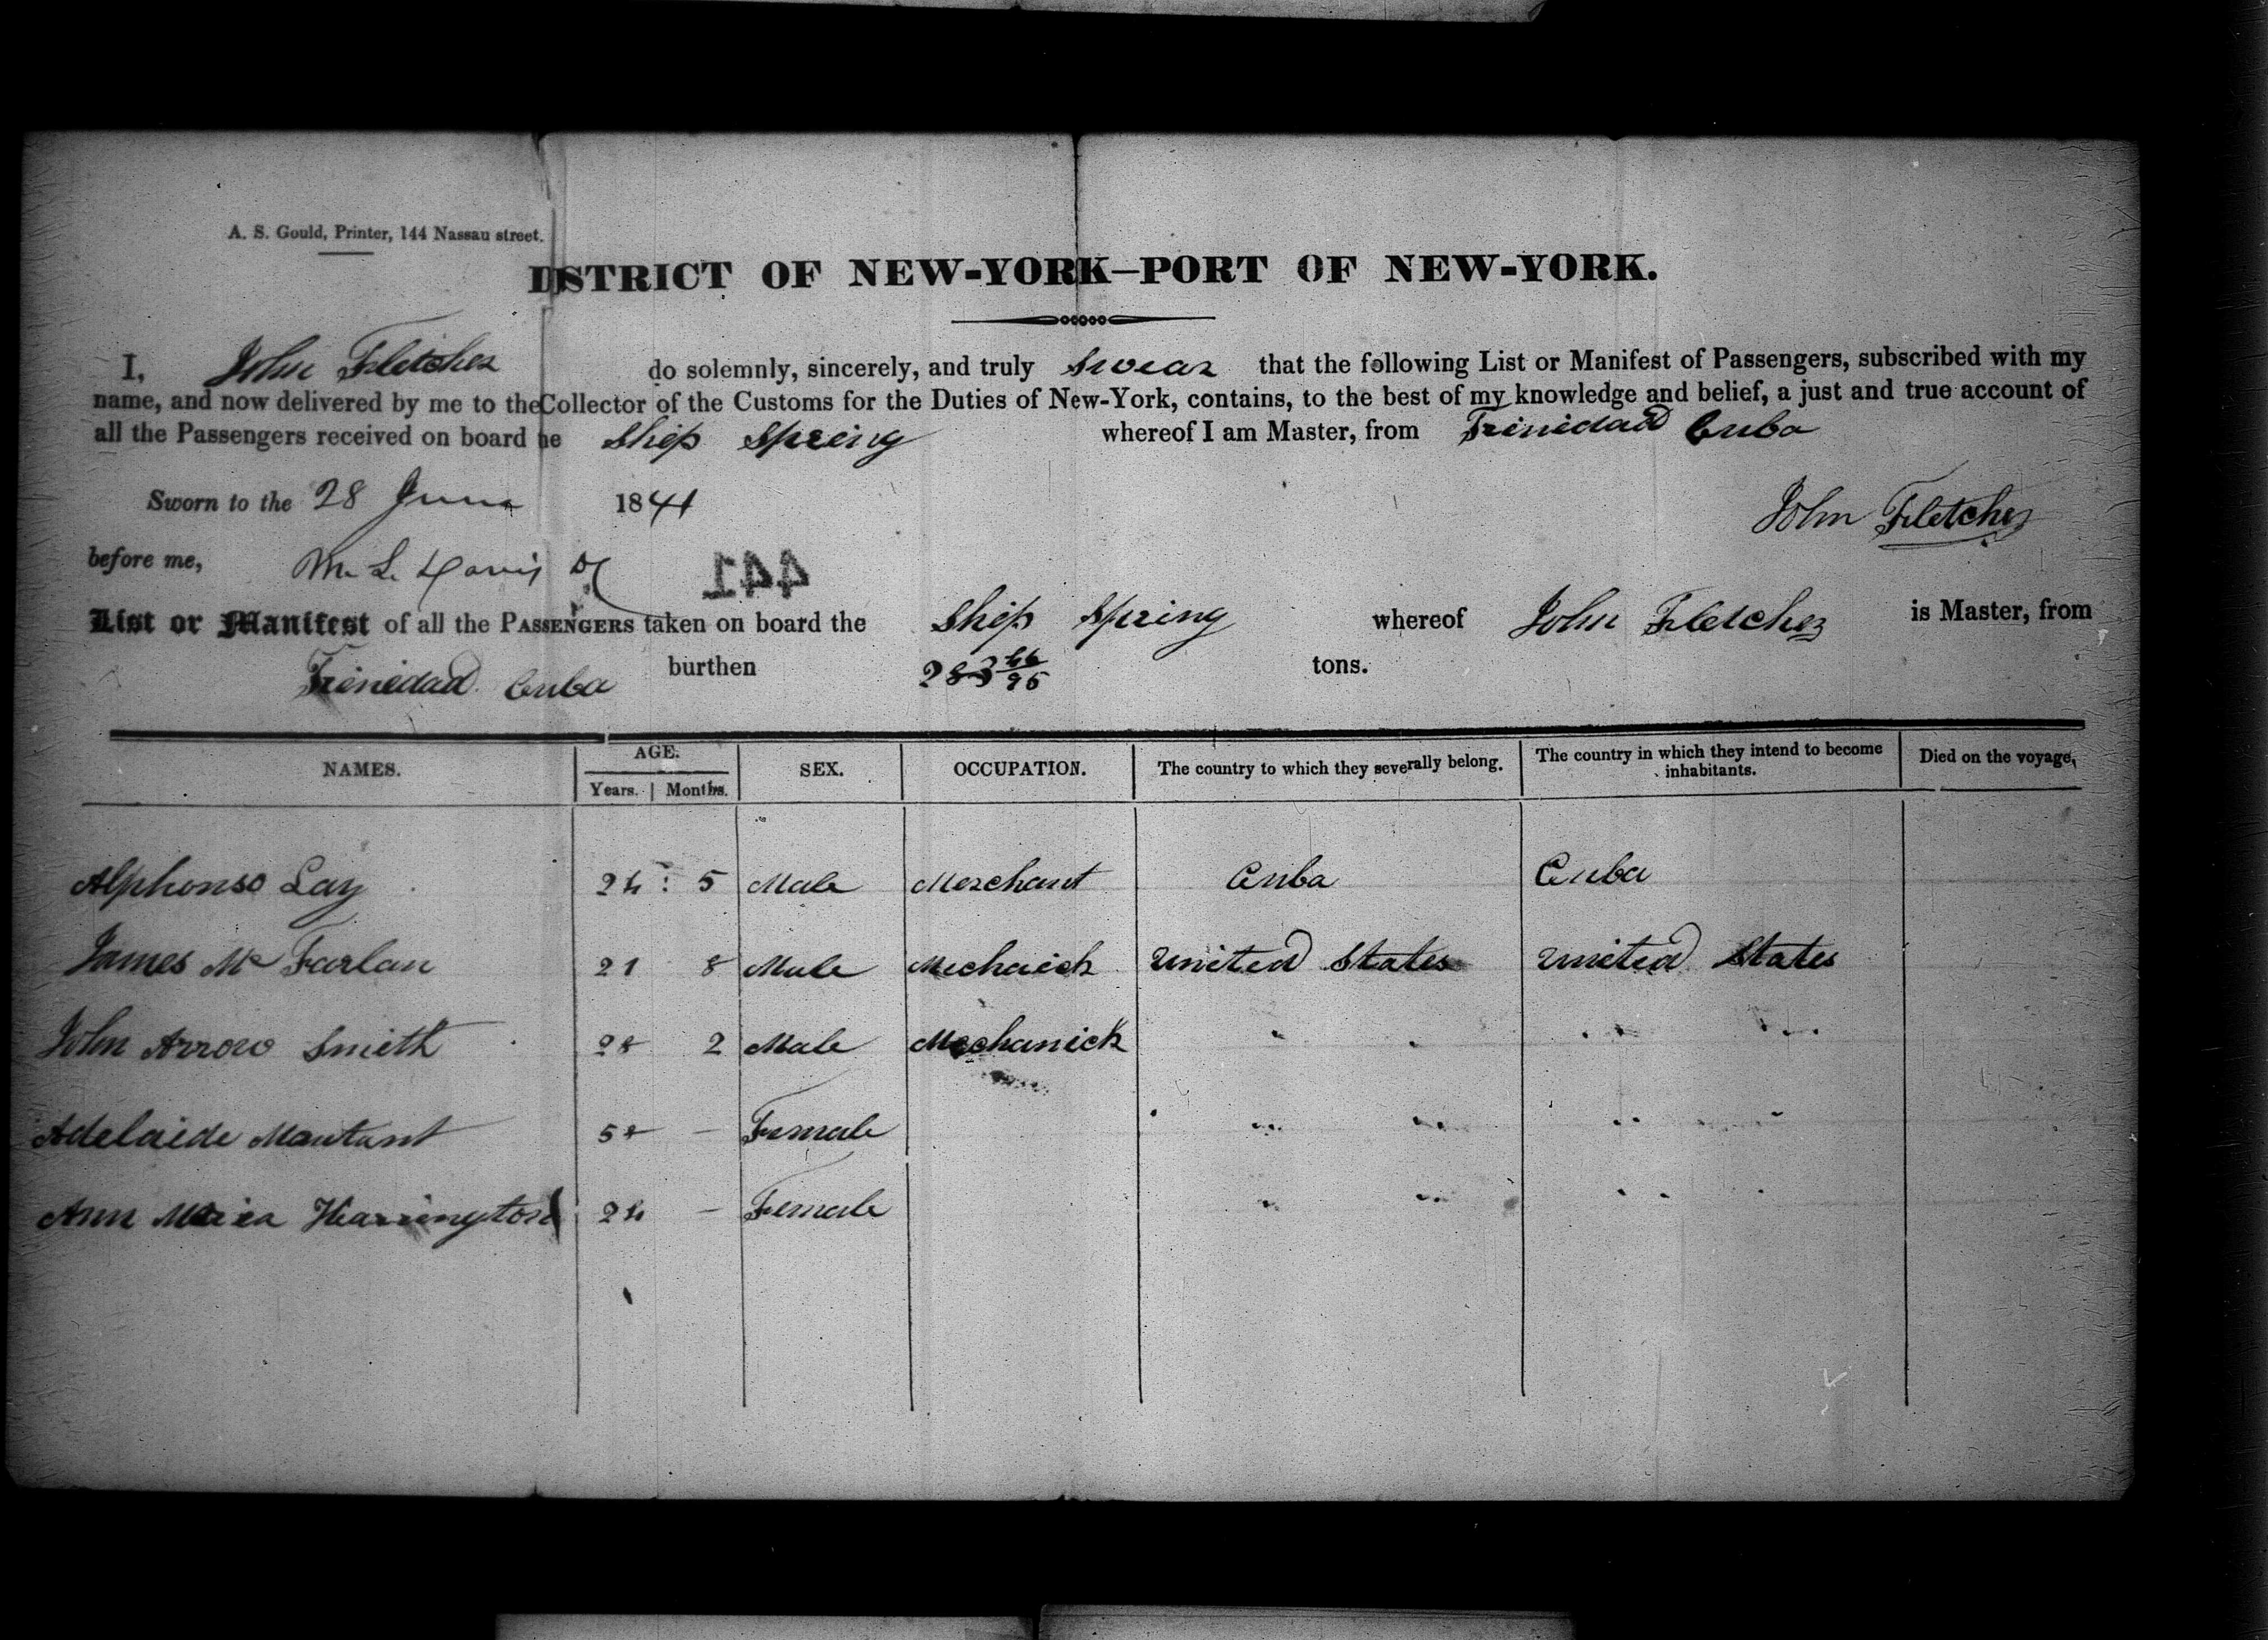 A. S. Gould, Printer, 144 Nassau street.
DISTRICT OF NEW-YORK—PORT OF NEW-YORK.
I, John Fletcher do solemnly, sincerely, and truly Swear that the following List or Manifest of Passengers, subscribed with my
name, and now delivered by me to the Collector of the Customs for the Duties of New-York, contains, to the best of my knowledge and belief, a just and true account of
all the Passengers received on board he Ship Spring whereof I am Master, from Trinidad Cuba
Sworn to the 28 June 1841
John Fletcher
before me, M. L. Davis
441
List or Manifest of all the PASSENGERS taken on board the Ship Spring whereof John Fletcher is Master, from
Trinidad Cuba burthen 283 66/95 tons.
NAMES. AGE. SEX. OCCUPATION. The country to which they severally belong. The country in which they intend to become inhabitants. Died on the voyage,
Years. Months.
Alphonso Lay 24 : 5 Male Merchant Cuba Cuba
James Mc Farlan 21 8 Male Mechaick United States United States
John Arrow Smith 28 2 Male Mechanick " " " "
Adelaide Mantant 58 — Female " " " "
Ann Maria Harrington 24 — Female " " " "